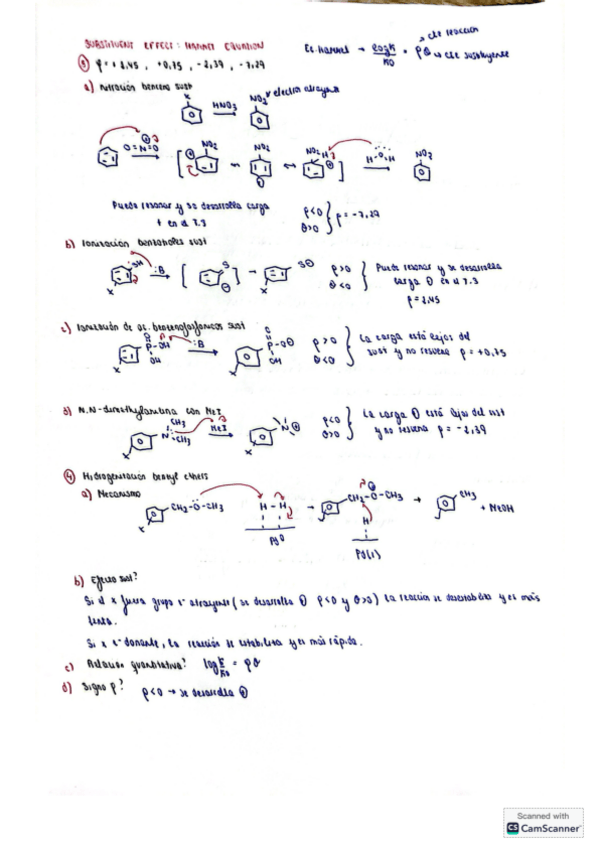 SUBSTITUENT EFFECT: HAMMET EQUATION
Ec. Hammet → log K/K0 = ρσ
cte reacción
cte sustituyente
ρ = +2,45, +0,75, -2,39, -7,29
a) Nitración benceno sust
X
HNO3
NO2
electro atrayente
O=N=O
NO2
NO2
NO2 H
H-O-H
NO2
Puede resonar y se desarrolla carga
+ en el
ρ<0
σ>0
ρ = -7,29
b) Ionización benzotioles sust
SH
:B
S
S⊖
X
X
ρ>0
σ<0
Puede resonar y se desarrolla
carga ⊖ en el
ρ = 2,45
c) Ionización de ac. bencenofosfónicos sust
O
P-OH
OH
:B
O
P-O⊖
OH
X
X
ρ>0
σ<0
La carga está lejos del
sust y no resuena ρ = +0,75
d) N,N-dimethylanilina con MeI
CH3
N
CH3
MeI
N⊕
X
X
ρ<0
σ>0
La carga ⊕ está lejos del sust
y no resuena ρ = -2,39
④ Hidrogenación benzyl ethers
a) Mecanismo
CH2-O-CH3
X
H-H
Pd0
CH2-O-CH3
H
Pd(s)
CH3
+ MeOH
b) Efecto sust?
Si el x fuera grupo e- atrayente (se desarrolla ⊕ ρ<0 y σ>0) la reacción se desestabiliza y es más
lenta.
Si x e- donante, la reacción se estabiliza y es más rápida.
c) Relación quantitativa? log K/K0 = ρσ
d) Signo ρ? ρ<0 → se desarrolla ⊕
Scanned with
CS CamScanner